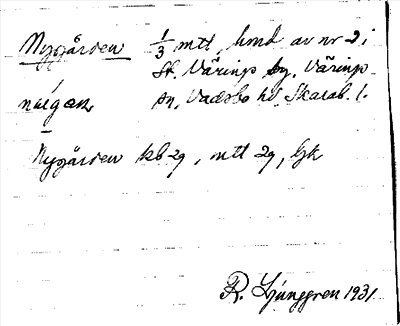 Nygården 1/3 mtl, hmd av nr 2 i
St. Väring by, Väring
sn, Vadsbo hd, Skarab. l.
Nygården kb 29, mtl 29, Gk
R. Ljunggren 1931